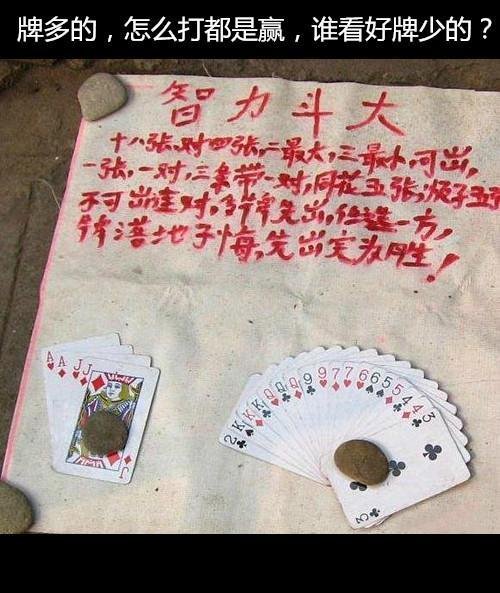 牌多的，怎么打都是赢，谁看好牌少的？
智力斗大
十八张,对四张,二最大,三最小,可出,
一张,一对,三条带一对,同花五张,子五
不可出连对,多牌先出,任选一方,
牌落地悔,先出完为胜!
A A J J
J
2 K K Q Q Q 9 9 7 7 6 6 5 5 4 4 3
3